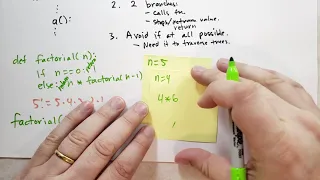 a():
2. 2 branches:
- Calls fn.
- Stops/returns value.
return
3. Avoid if at all possible.
- Need it to traverse trees.
def factorial(n):
if n==0:
else: n * factorial(n-1)
5! = 5·4·
factorial(
n=5
n=4
4*6